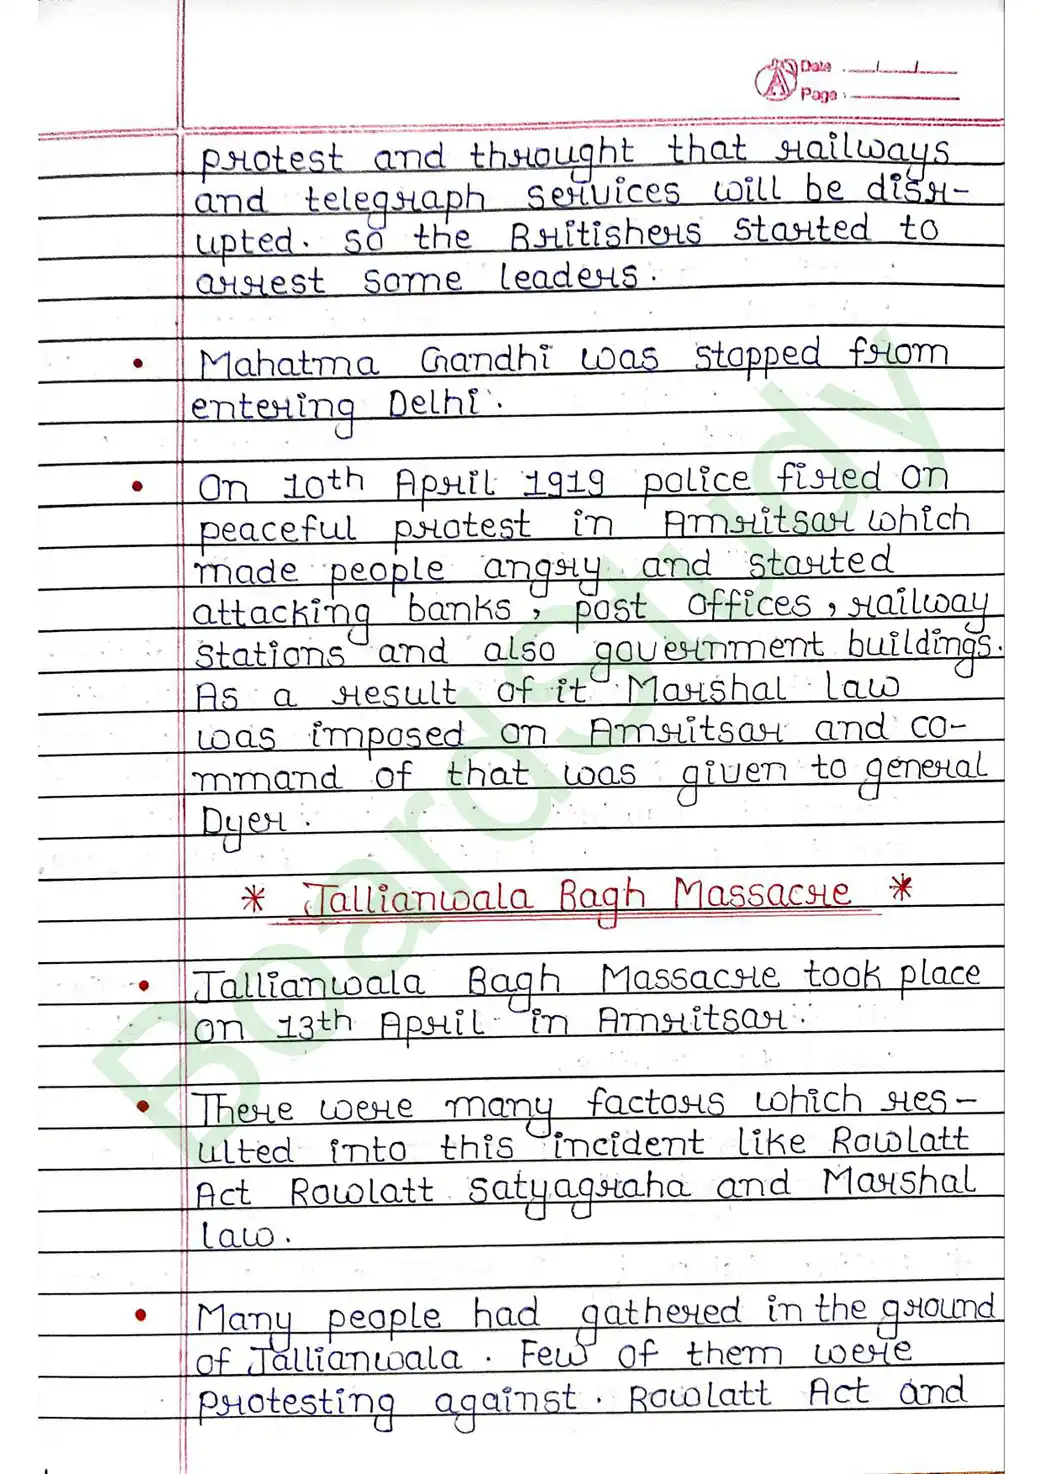 Date : __/__/__
Page : ______
protest and throught that railways
and telegraph services will be disr-
upted. so the Britishers started to
arrest some leaders.
• Mahatma Gandhi was stopped from
entering Delhi.
• On 10th April 1919 police fired on
peaceful protest in Amritsar which
made people angry and started
attacking banks, post offices, railway
stations and also government buildings.
As a result of it Marshal law
was imposed on Amritsar and co-
mmand of that was given to general
Dyer.
* Jallianwala Bagh Massacre *
• Jallianwala Bagh Massacre took place
on 13th April in Amritsar.
• There were many factors which res-
ulted into this incident like Rowlatt
Act Rowlatt satyagraha and Marshal
law.
• Many people had gathered in the ground
of Jallianwala. Few of them were
protesting against. Rowlatt Act and
BoardStudy